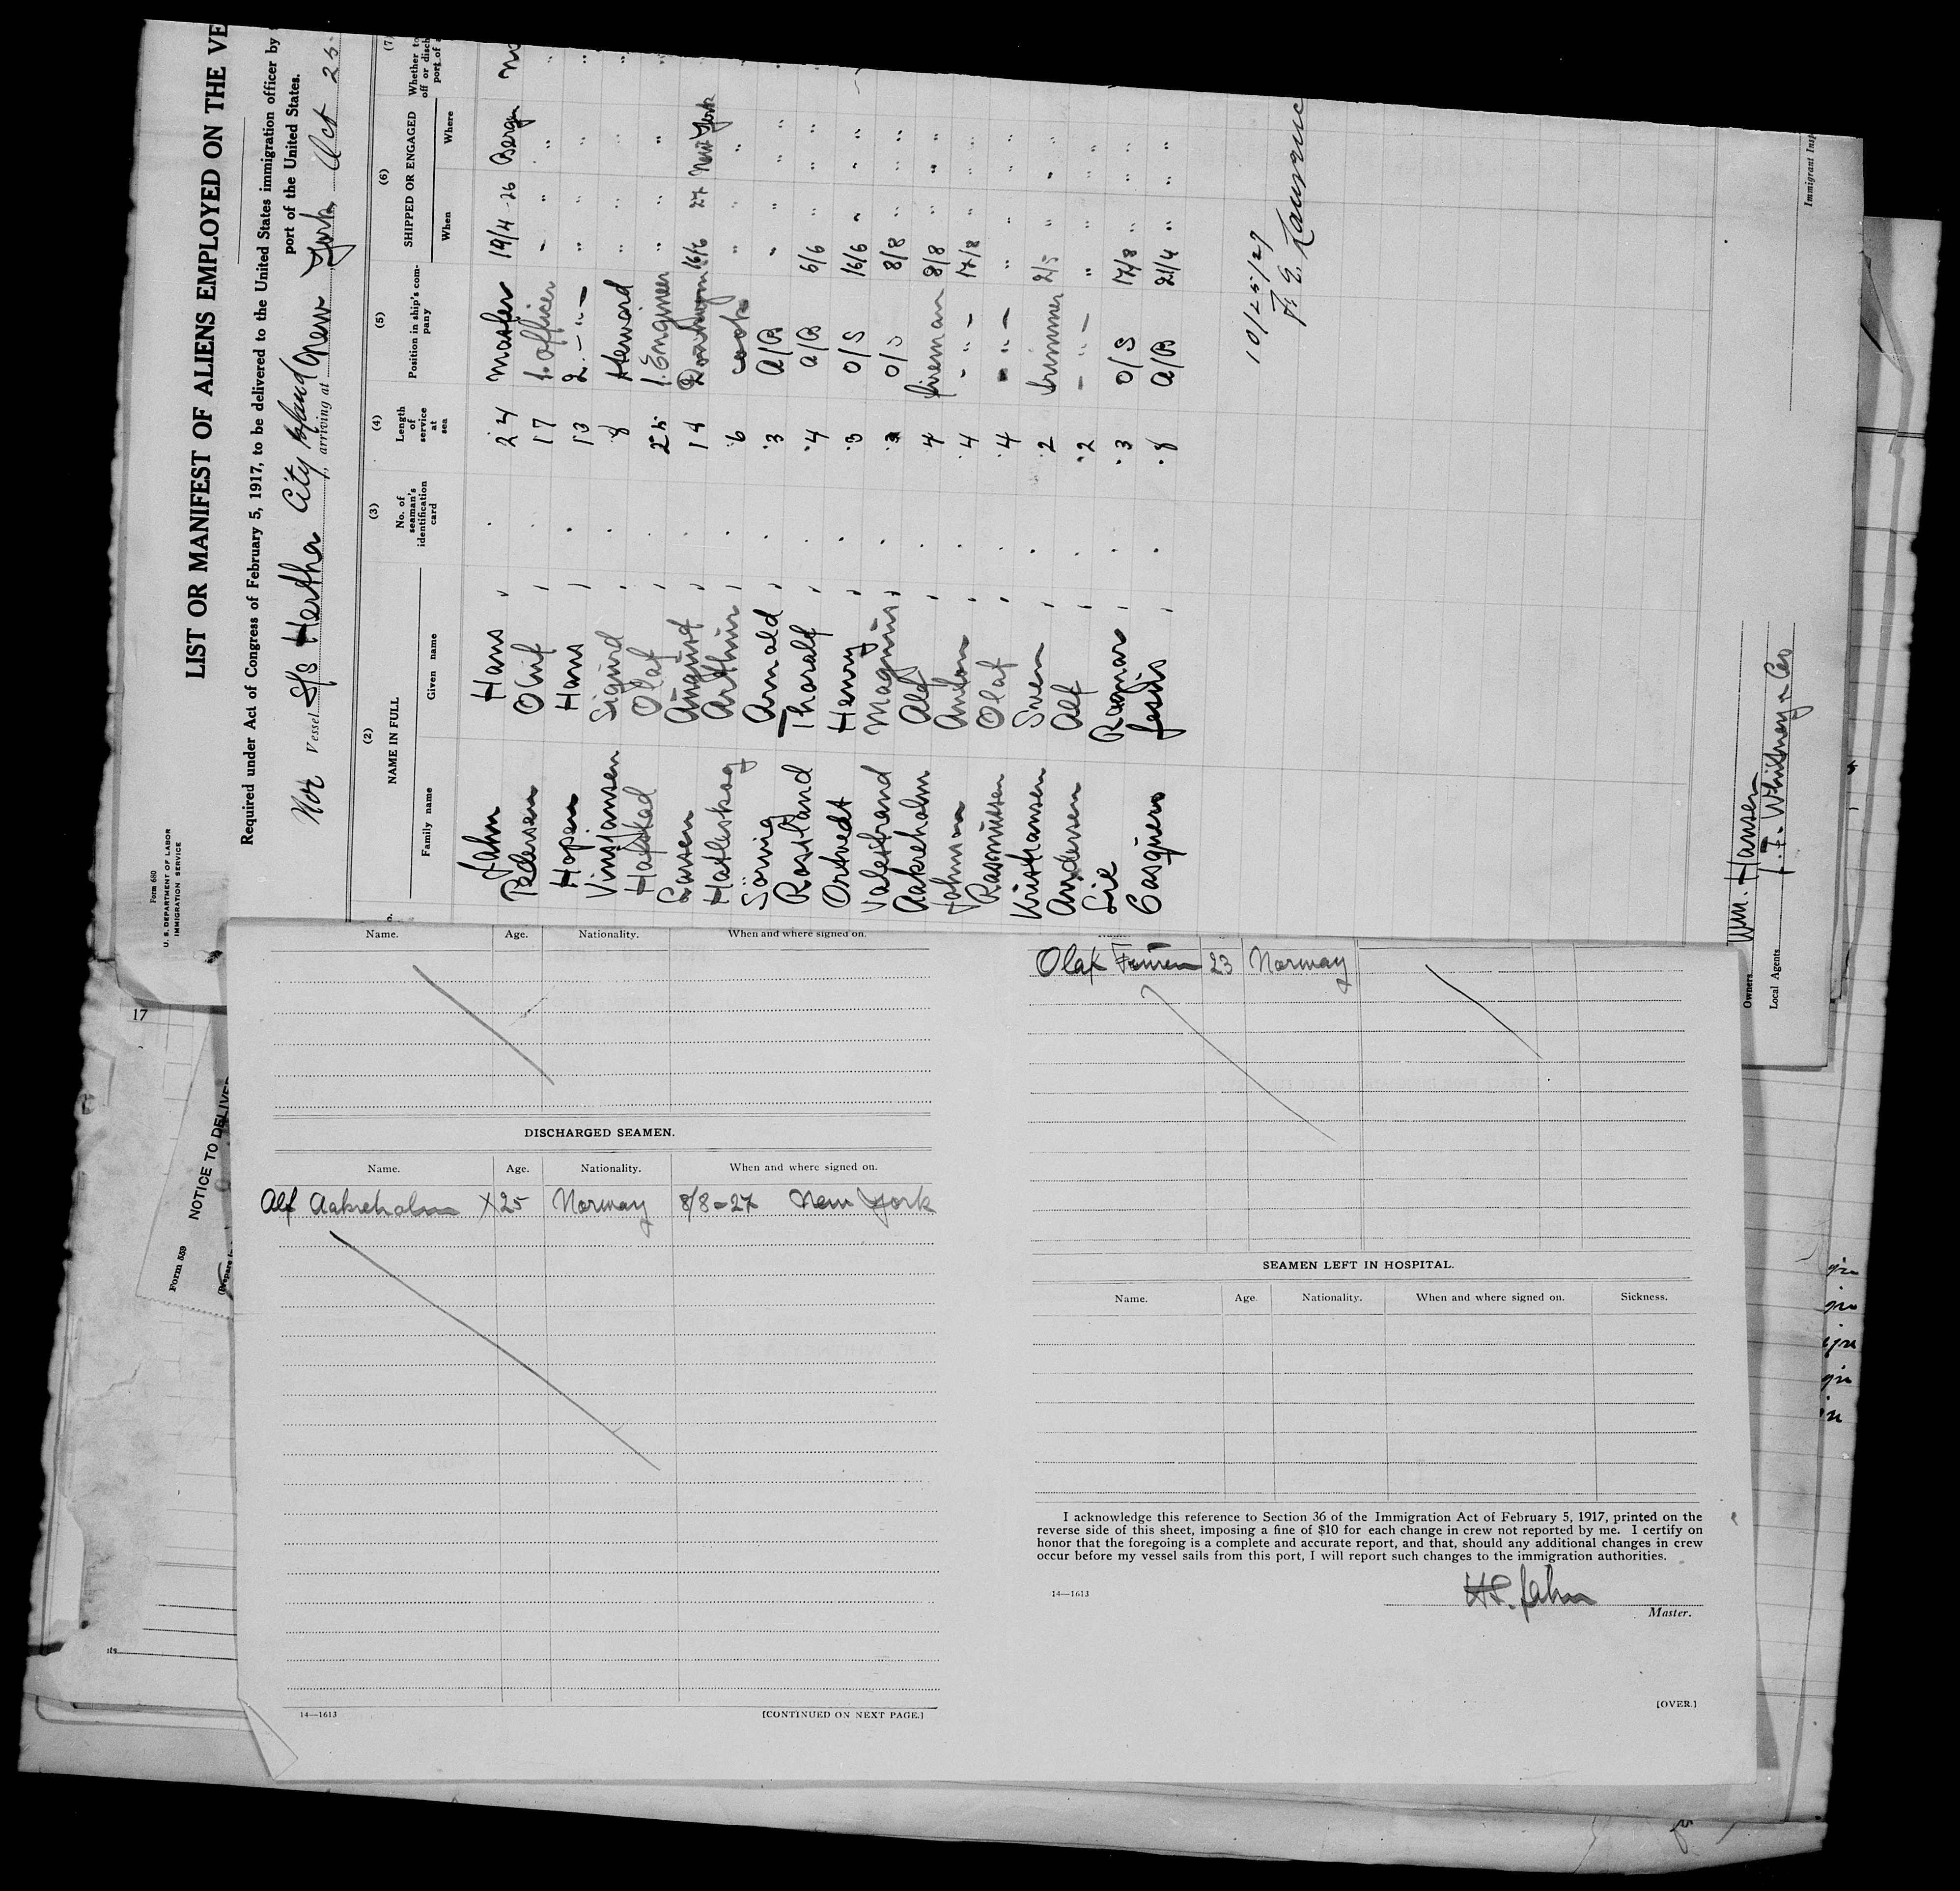 Form 680
U. S. DEPARTMENT OF LABOR
IMMIGRATION SERVICE
LIST OR MANIFEST OF ALIENS EMPLOYED ON THE VE
Required under Act of Congress of February 5, 1917, to be delivered to the United States immigration officer by
port of the United States.
Nor Vessel S/S Hertha City Island, arriving at New York, Oct 25
(2) (3) (4) (5) (6) (7)
NAME IN FULL No. of seaman's identification card Length of service at sea Position in ship's company SHIPPED OR ENGAGED Whether to
off or disch
port of a
Family name Given name When Where
Jahn Hans 24 Master 19/4-26 Bergn
Pedersen Oluf 17 1. Officer " "
Hopen Hans 13 2. -"- " "
Vinjansen Sigurd 8 Steward " "
Hafstad Olaf 25 1. Engineer " "
Larsen August 14 16/6 27 New York
Hatleskog Arthur 6 cook " " "
Sörvig Arnald 3 A/B " " "
Rostland Tharalf 4 A/B 6/6 " "
Ortvedt Henry 3 O/S 16/6 " "
Valestrand Magnus 3 O/S 8/8 " "
Aakreholm Alf 4 fireman 8/8 " "
Johnsen Anton 4 - " - 17/8 " "
Rasmussen Olaf 4 - " - " " "
Kristiansen Sven 2 trimmer 2/5 " "
Andersen Alf 2 - " - " " "
Lie Ragnar 3 O/S 17/8 " "
Casquero Jesus 8 A/B 21/4 " "
10/25/27
Immigrant Insp
Owners Wm. Hansen
Local Agents J. F. Whitney & Co
17
Form 559
NOTICE TO DELIVER
Name. Age. Nationality. When and where signed on.
DISCHARGED SEAMEN.
Name. Age. Nationality. When and where signed on.
Alf Aakreholm X25 Norway 8/8-27 New York
14—1613 [CONTINUED ON NEXT PAGE.]
Olaf 23 Norway
SEAMEN LEFT IN HOSPITAL.
Name. Age. Nationality. When and where signed on. Sickness.
I acknowledge this reference to Section 36 of the Immigration Act of February 5, 1917, printed on the
reverse side of this sheet, imposing a fine of $10 for each change in crew not reported by me. I certify on
honor that the foregoing is a complete and accurate report, and that, should any additional changes in crew
occur before my vessel sails from this port, I will report such changes to the immigration authorities.
14—1613 H. Jahn
Master.
[OVER.]